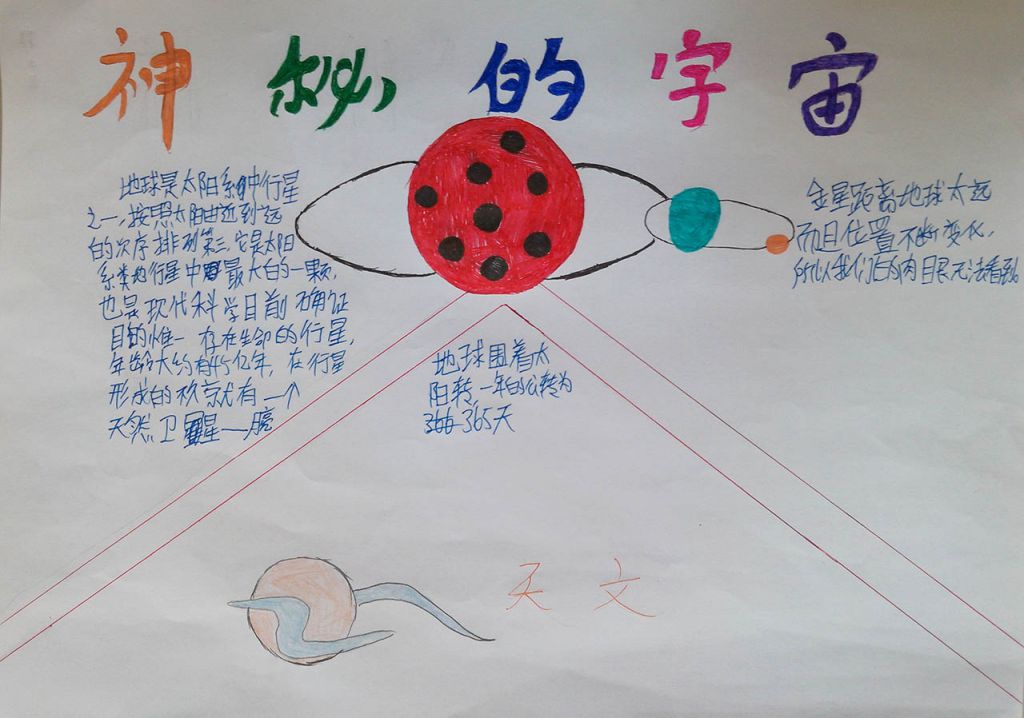 神秘的宇宙
地球是太阳系中行星
之一,按照太阳由近到远
的次序排列第三,它是太阳
系类地行星中最大的一颗,
也是现代科学目前确证
目的惟一存在生命的行星,
年龄大约有45亿年,在行星
形成的 就有一个
天然卫星—月亮
地球围着太
阳转,一年的公转为
366-365天
金星距离地球太远
而且位置不断变化,
所以我们的肉眼无法看到
天文